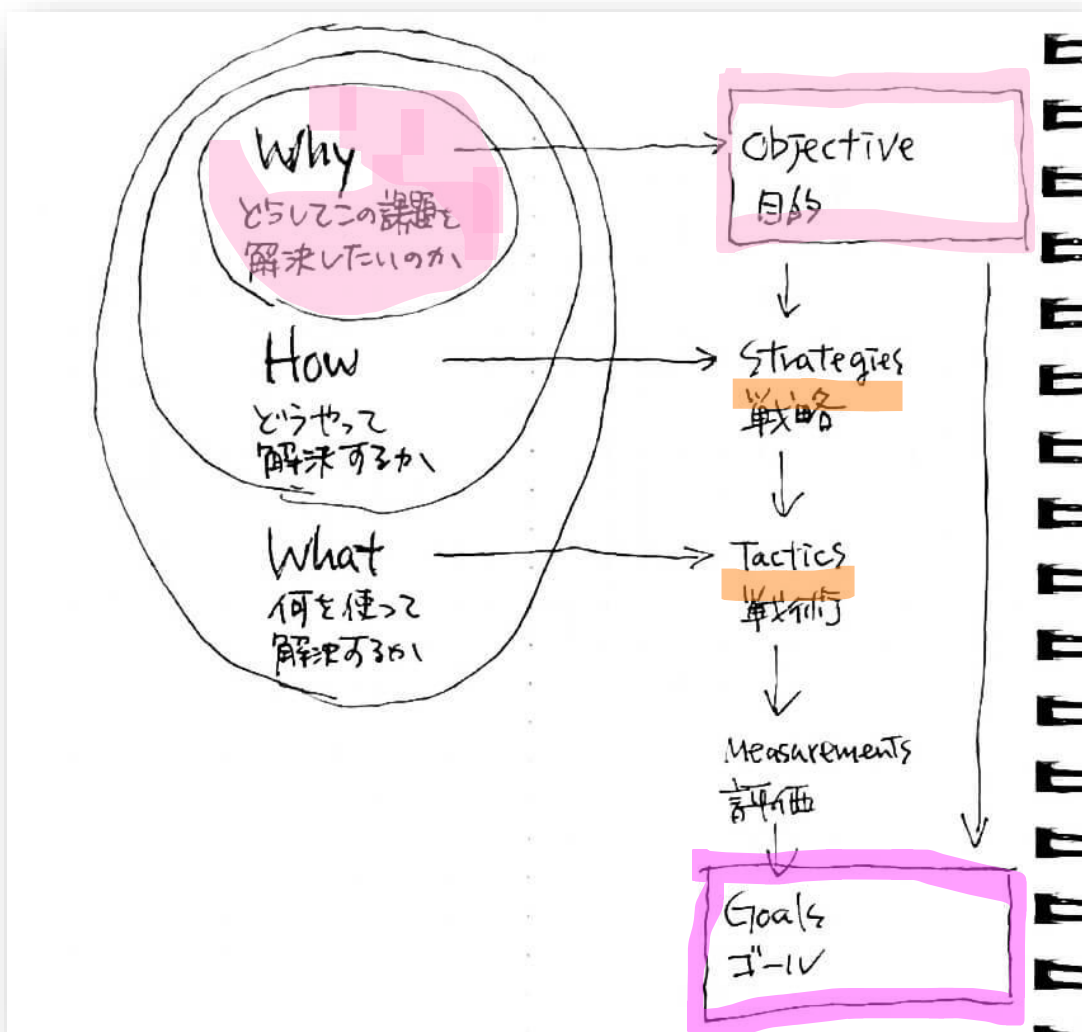 Why
どうしてこの課題を
解決したいのか
How
どうやって
解決するか
What
何を使って
解決するか
Objective
目的
Strategies
戦略
Tactics
戦術
Measurements
評価
Goals
ゴール